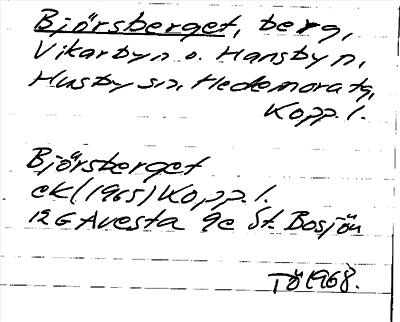 Björsberget, berg,
Vikarbyn o. Hansbyn,
Husby sn, Hedemora tg,
Kopp. l.
Björsberget
ek (1965) Kopp. l.
12G Avesta 9c St. Bosjön
TÖ 1968.